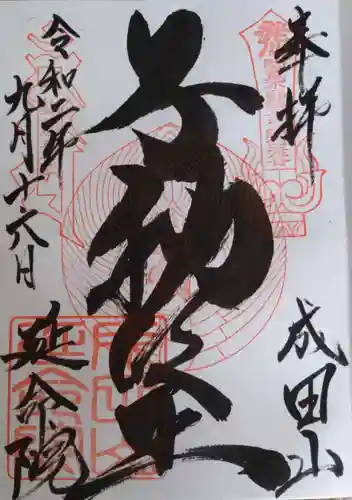 奉拝
成田山
不動堂
令和二年
九月十六日
延命院